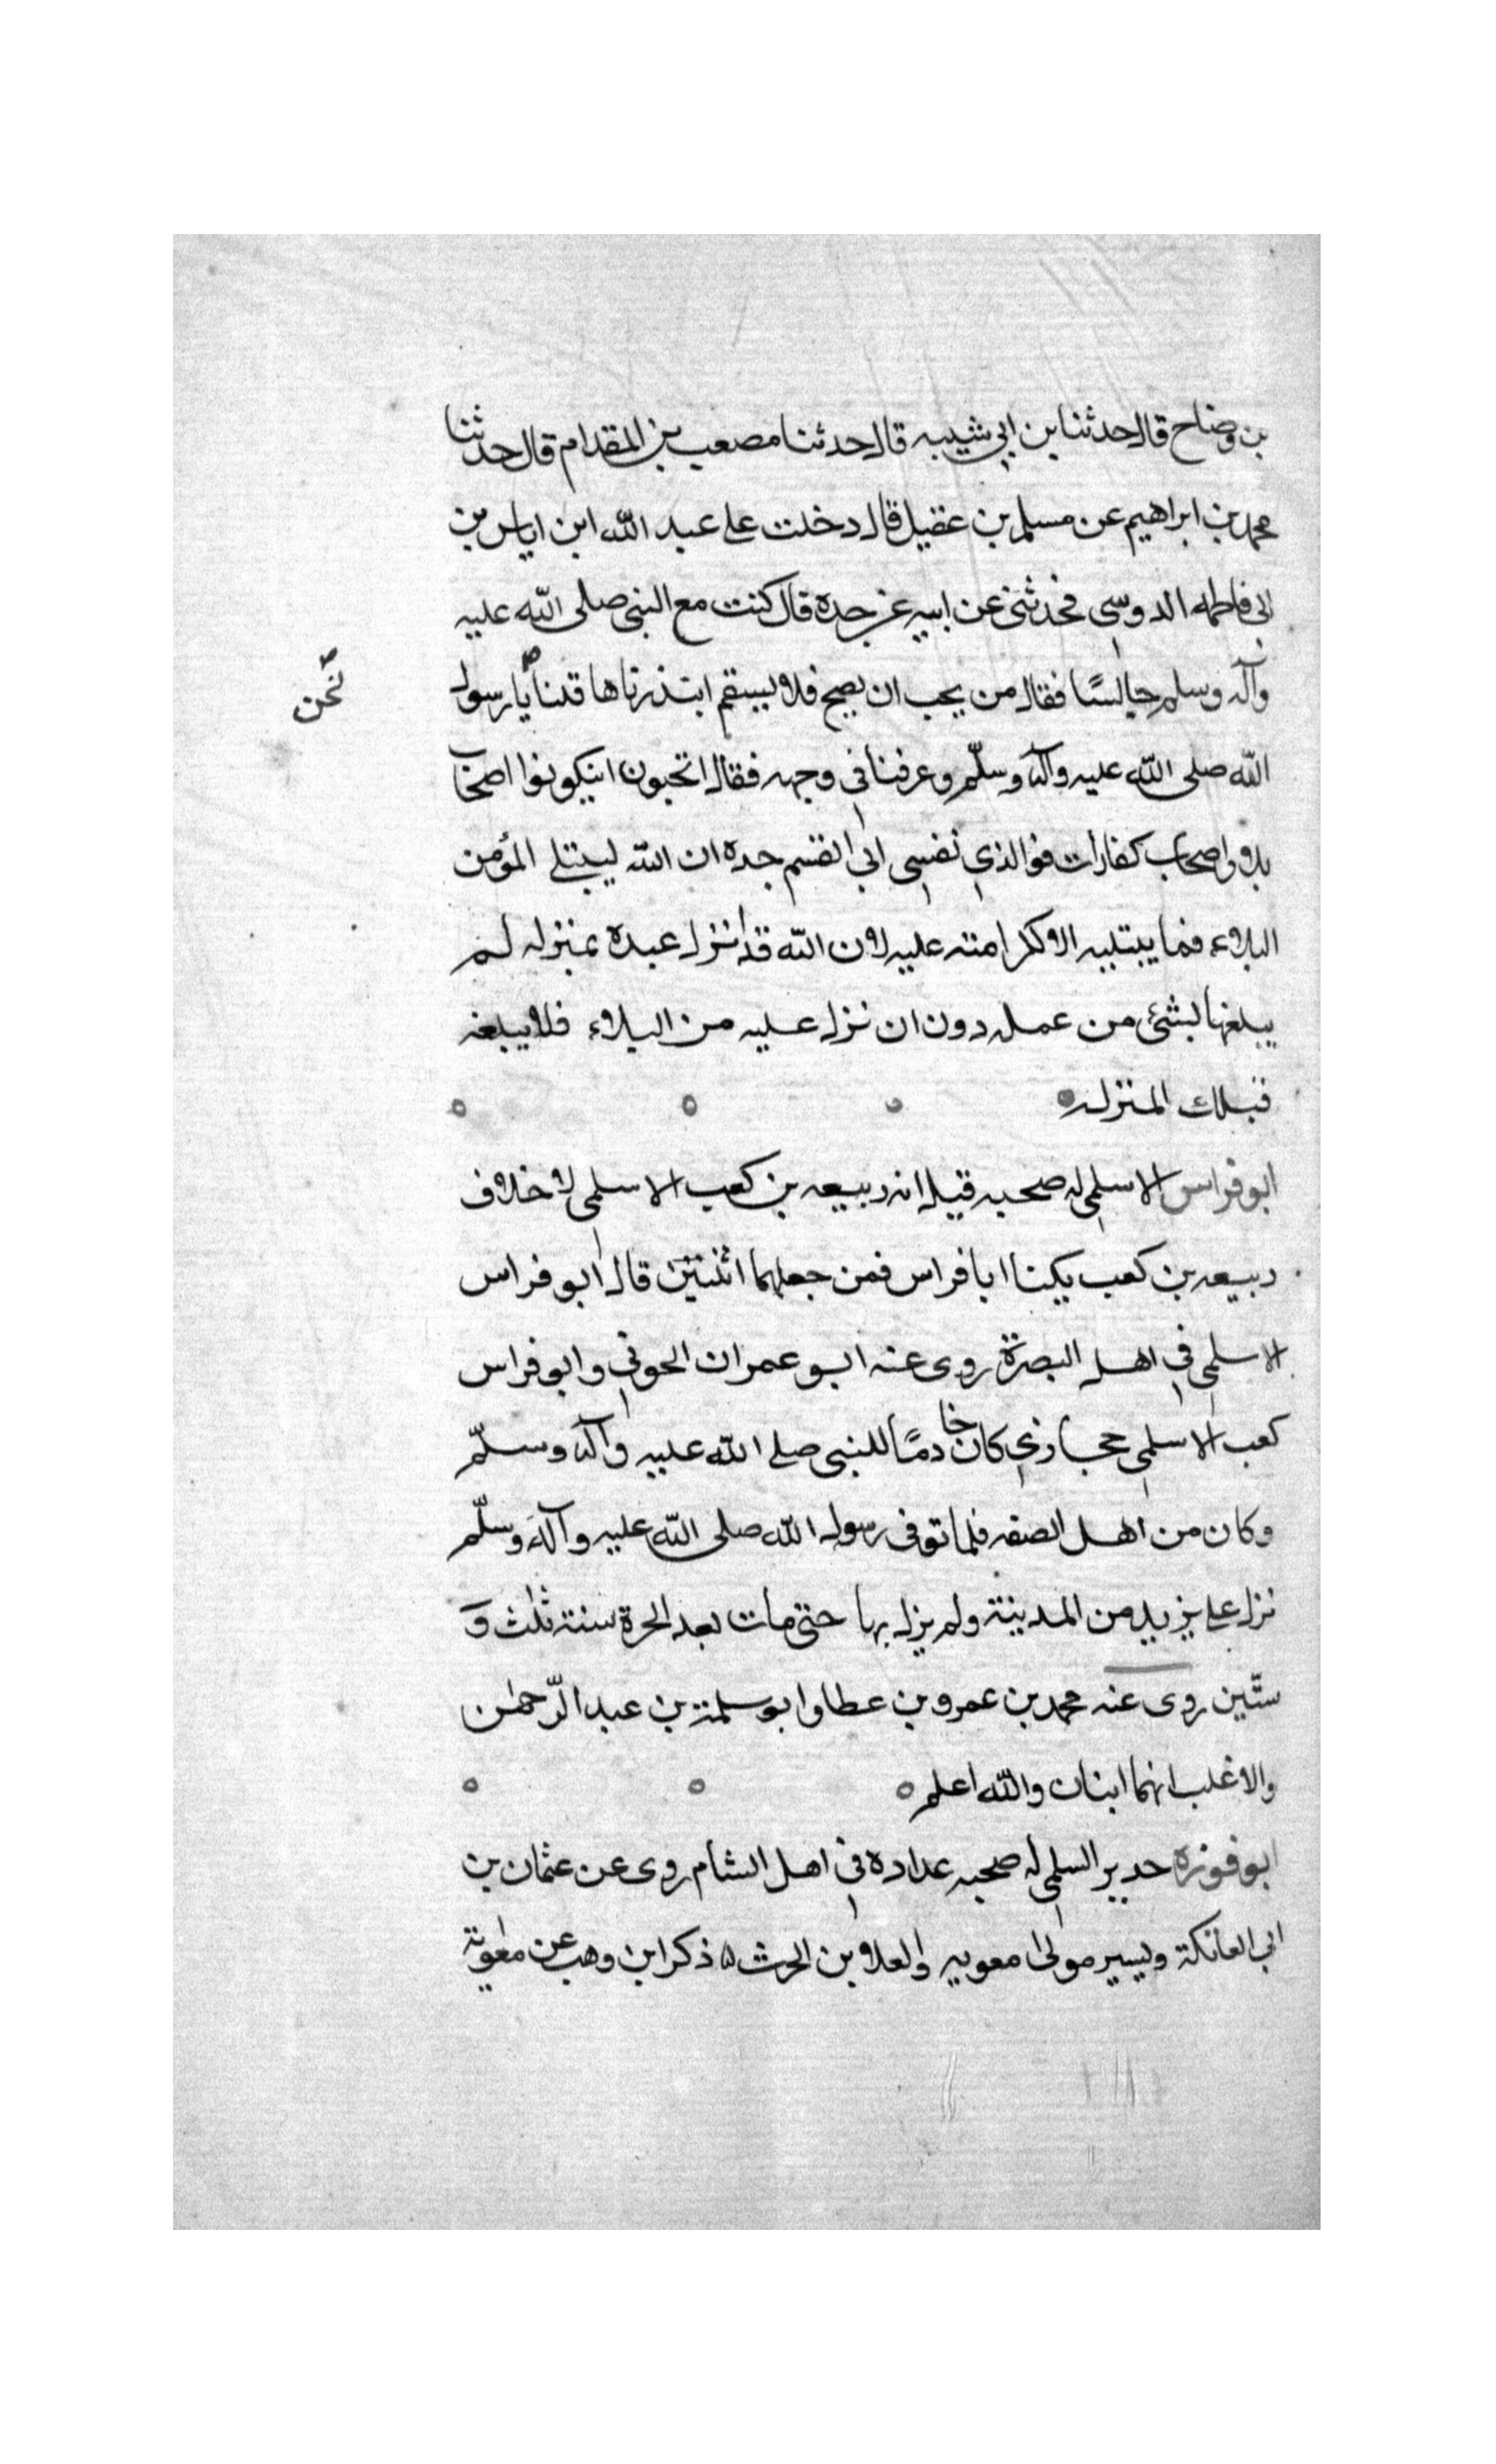 بن وضاح قال حدثنا بن ابي شيبه قال حدثنا مصعب بن المقدام قال حدثنا
محمد بن ابراهيم عن مسلم بن عقيل قال دخلت على عبد الله ابن اياس بن
ابي فاطمه الدوسي فحدثني عن ابيه عن جده قال كنت مع النبي صلى الله عليه
وآله وسلم جالسًا فقال من يحب ان يصح فلا يسقم ابتدرناها قلنا يا رسول
نحن
الله صلى الله عليه وآله وسلّم وعرفنا في وجهه فقال اتحبون ان يكونوا اصحاب
بلاو واصحاب كفارات فوالذي نفسي ابي القسم جده ان الله ليبتلي المؤمن
البلاء فما يبتليه الا لكرامته عليه لان الله قد انزل عبده بمنزله لم
يبلغها بشئ من عمله دون ان نزل عليه من البلاء فلا يبلغه
فتلك المنزله
ابو فراس الاسلمي له صحبه قيل انه ربيعه بن كعب الاسلمي لا خلاف
ربيعه بن كعب يكنا ابا فراس فمن جعلهما اثنين قال ابو فراس
الاسلمي في اهل البصرة روى عنه ابو عمران الحوني وابو فراس
كعب الاسلمي حجازي كان خادمًا للنبي صلى الله عليه وآله وسلّم
وكان من اهل الصفه فلما توفى رسول الله صلى الله عليه وآله وسلّم
نزل على يزيد من المدينة ولم يزل بها حتى مات بعد الحرة سنة ثلث و
ستّين روى عنه محمد بن عمرو بن عطا وابو سلمة بن عبد الرّحمن
والاغلب انهما اثنان والله اعلم
ابو فوزه حدير السلمي له صحبه عداده في اهل الشام روى عن عثمان بن
ابي العاتكة ويسير مولى معويه والعلا بن الحرث ذكر ابن وهب عن معوية